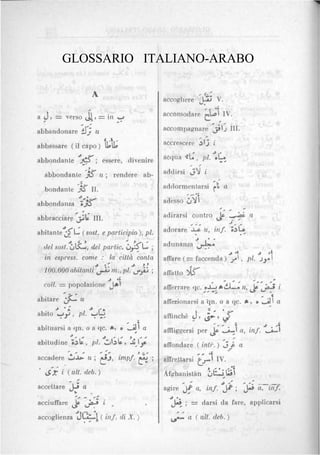 GLOSSARIO ITALIANO-ARABO
A
a لِ, = verso إلى, = in بِ
abbandonare ترك u
abbassare (il capo)
abbondante كثير ; essere, divenire
abbondante كثر u ; rendere ab-
bondante كثّر II.
abbondanza كثرة
abbracciare عانق III.
abitante ساكن (sost. e participio), pl.
dei sost. سكّان, dei partic. ساكنون ;
in espress. come : la città conta
100.000 abitanti m., pl. ;
coll. = popolazione أهل
abitare سكن u
abito ثوب, pl. ثياب
abituarsi a qn. o a qc. a
abitudine عادة, pl. عادات,
accadere حدث u ; وقع, impf. يقع ;
جرى i (ult. deb.)
accettare قبل a
acciuffare قبض على i
accoglienza استقبال (inf. di X.)
accogliere V.
accomodare IV.
accompagnare رافق III.
accrescere زاد i
acqua ماء, pl. مياه
addirsi i
addormentarsi نام a
adesso الآن
adirarsi contro غضب على a
adorare عبد u, inf. عبادة
adunanza
affare (= faccenda) أمر, pl. أمور
affatto
afferrare qc. u, قبض على i
affezionarsi a qn. o qc. a
affinché لِ, , كي
affliggersi per a, inf.
affondare (intr.) غرق a
affrettarsi أسرع IV.
Afghanistān أفغانستان
agire فعل a, inf. فعل ; a, inf.
; = darsi da fare, applicarsi
سعى a (ult. deb.)